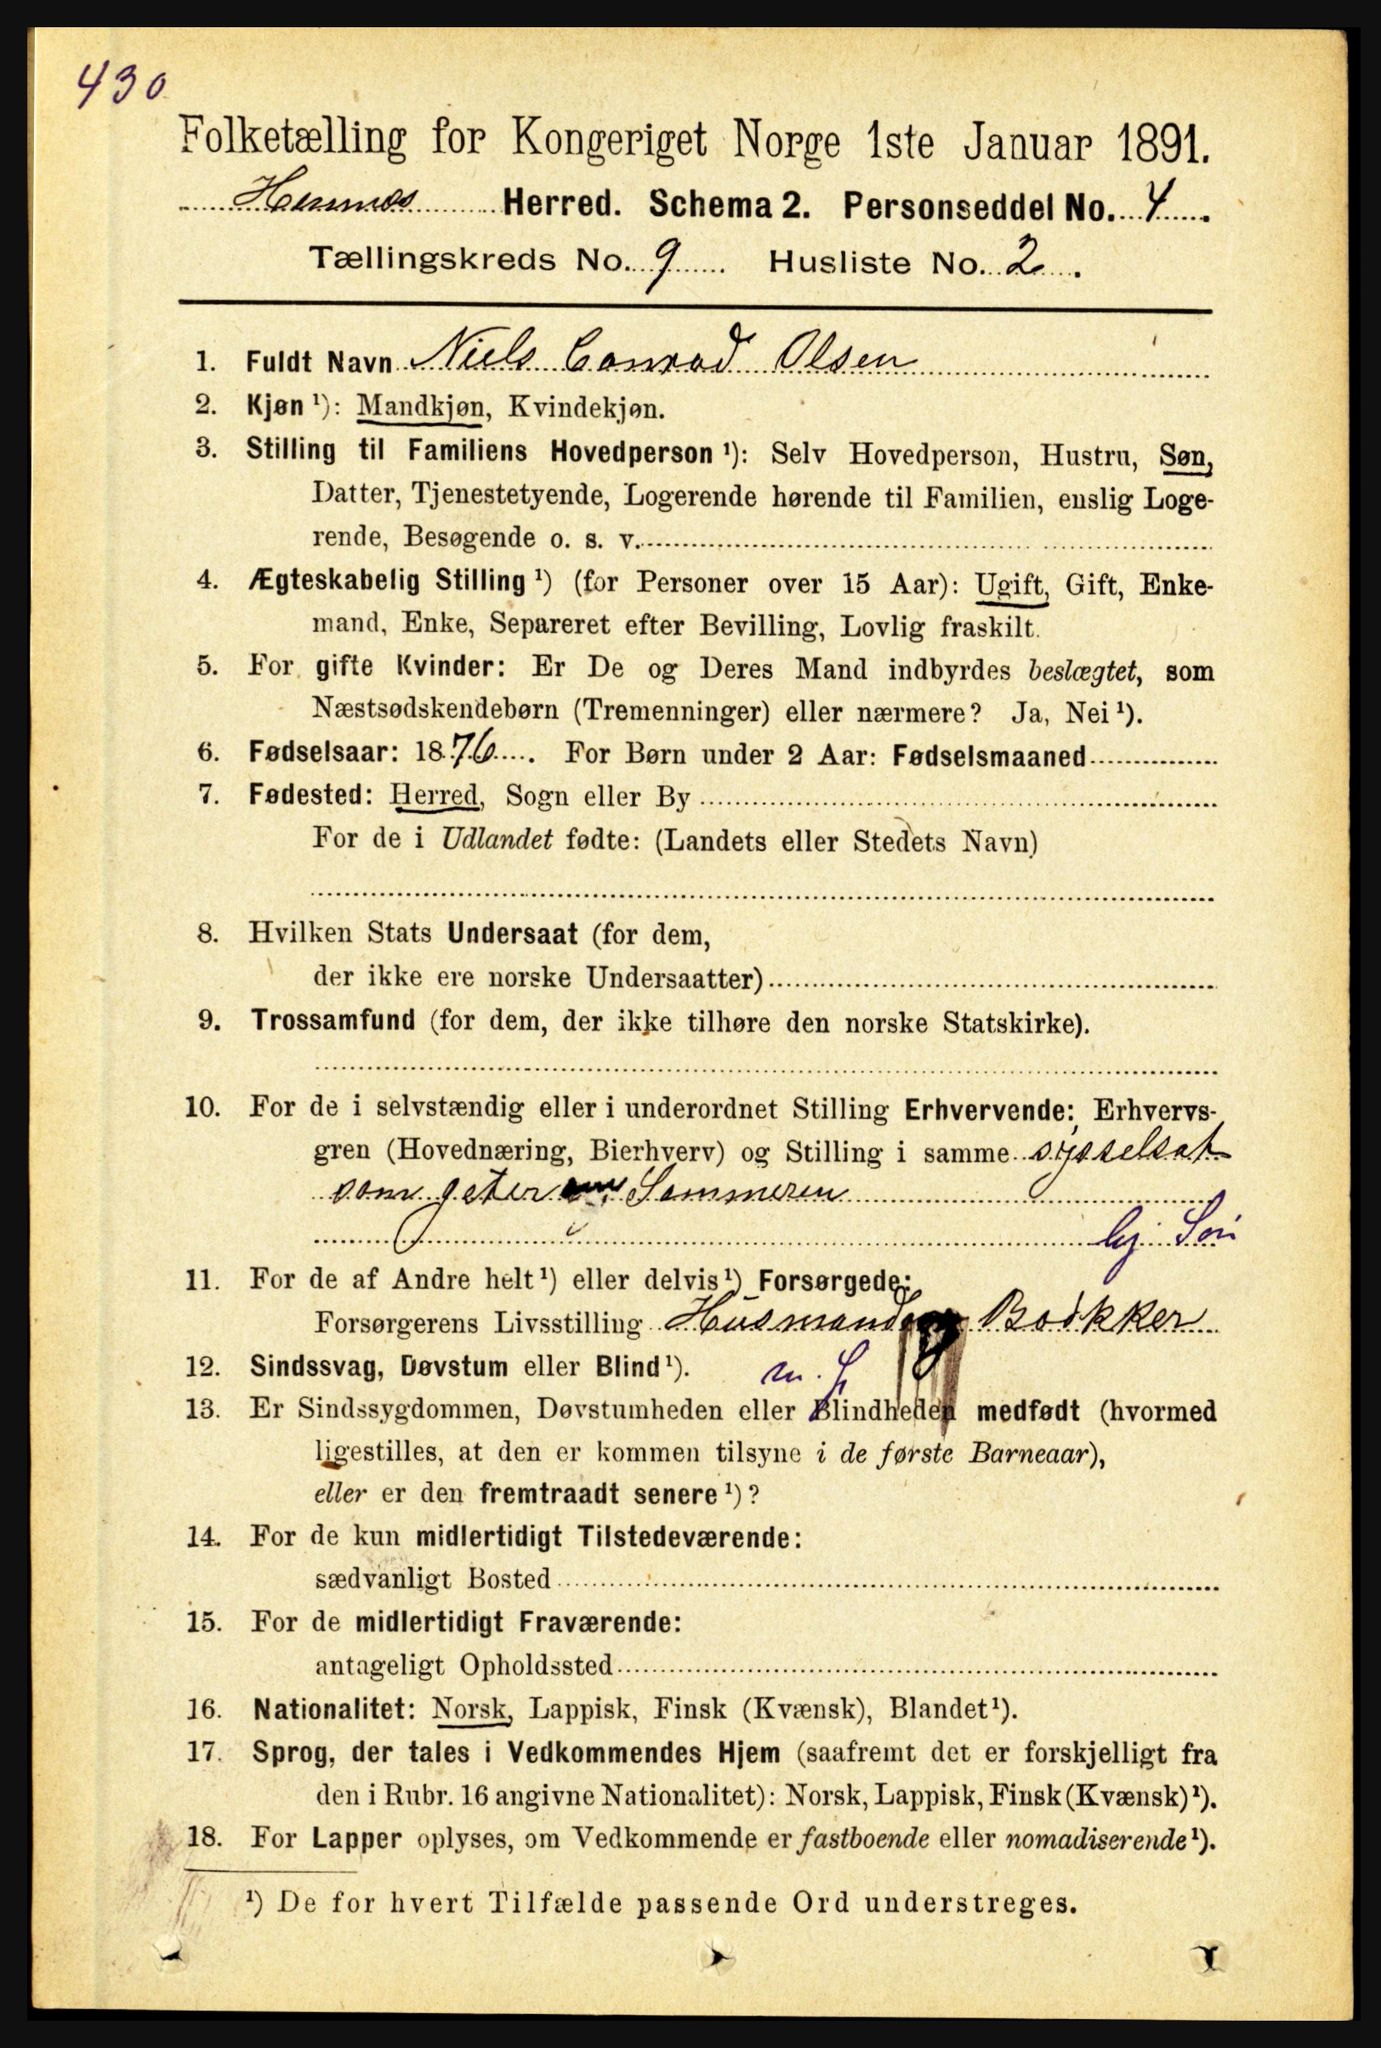 430
Folketælling for Kongeriget Norge 1ste Januar 1891.
Hemnes Herred. Schema 2. Personseddel No. 4.
Tællingskreds No. 9 Husliste No. 2.
1. Fuldt Navn Niels Conrad Olsen
2. Kjøn ¹): Mandkjøn, Kvindekjøn.
3. Stilling til Familiens Hovedperson ¹): Selv Hovedperson, Hustru, Søn,
Datter, Tjenestetyende, Logerende hørende til Familien, enslig Loge-
rende, Besøgende o. s. v.
4. Ægteskabelig Stilling ¹) (for Personer over 15 Aar): Ugift, Gift, Enke-
mand, Enke, Separeret efter Bevilling, Lovlig fraskilt.
5. For gifte Kvinder: Er De og Deres Mand indbyrdes beslægtet, som
Næstsødskendebørn (Tremenninger) eller nærmere? Ja, Nei ¹).
6. Fødselsaar: 1876. For Børn under 2 Aar: Fødselsmaaned
7. Fødested: Herred, Sogn eller By
For de i Udlandet fødte: (Landets eller Stedets Navn)
8. Hvilken Stats Undersaat (for dem,
der ikke ere norske Undersaatter)
9. Trossamfund (for dem, der ikke tilhøre den norske Statskirke).
10. For de i selvstændig eller i underordnet Stilling Erhvervende: Erhvervs-
gren (Hovednæring, Bierhverv) og Stilling i samme sysselsat
som gjeter om Sommeren
hj. Søn
11. For de af Andre helt ¹) eller delvis ¹) Forsørgede:
Forsørgerens Livsstilling Husmand og Bødkker
12. Sindssvag, Døvstum eller Blind ¹). m. L
13. Er Sindssygdommen, Døvstumheden eller Blindheden medfødt (hvormed
ligestilles, at den er kommen tilsyne i de første Barneaar),
eller er den fremtraadt senere ¹)?
14. For de kun midlertidigt Tilstedeværende:
sædvanligt Bosted
15. For de midlertidigt Fraværende:
antageligt Opholdssted
16. Nationalitet: Norsk, Lappisk, Finsk (Kvænsk), Blandet ¹).
17. Sprog, der tales i Vedkommendes Hjem (saafremt det er forskjelligt fra
den i Rubr. 16 angivne Nationalitet): Norsk, Lappisk, Finsk (Kvænsk) ¹).
18. For Lapper oplyses, om Vedkommende er fastboende eller nomadiserende ¹).
¹) De for hvert Tilfælde passende Ord understreges.